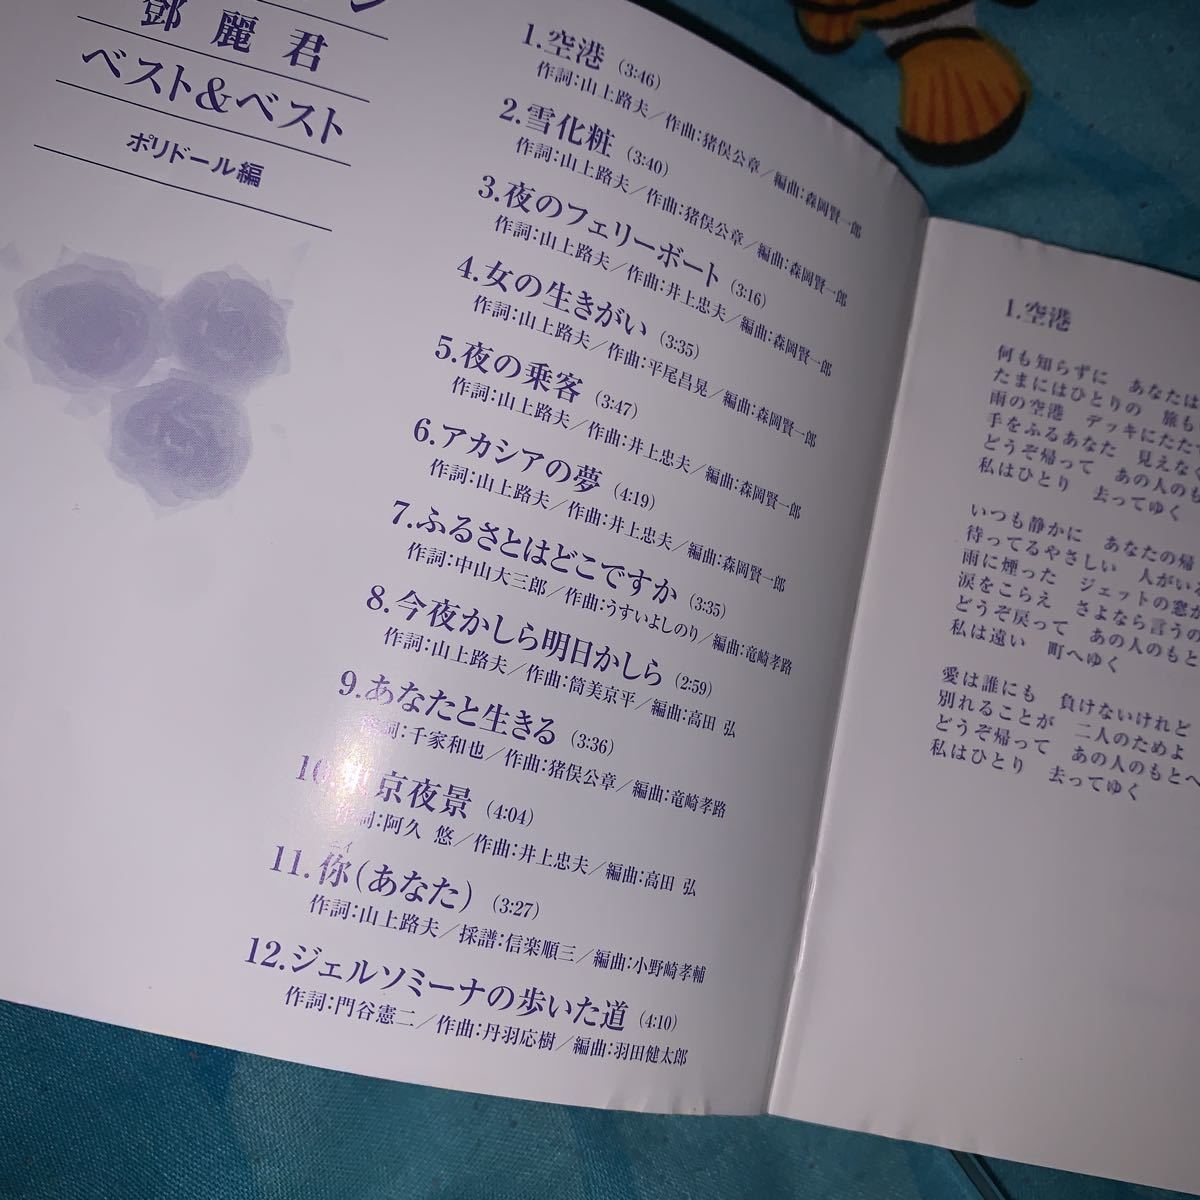 鄧麗君
ベスト&ベスト
ポリドール編
1.空港 (3:46)
作詞:山上路夫/作曲:猪俣公章/編曲:森岡賢一郎
2.雪化粧 (3:40)
作詞:山上路夫/作曲:猪俣公章/編曲:森岡賢一郎
3.夜のフェリーボート (3:16)
作詞:山上路夫/作曲:井上忠夫/編曲:森岡賢一郎
4.女の生きがい (3:35)
作詞:山上路夫/作曲:平尾昌晃/編曲:森岡賢一郎
5.夜の乗客 (3:47)
作詞:山上路夫/作曲:井上忠夫/編曲:森岡賢一郎
6.アカシアの夢 (4:19)
作詞:山上路夫/作曲:井上忠夫/編曲:森岡賢一郎
7.ふるさとはどこですか (3:35)
作詞:中山大三郎/作曲:うすいよしのり/編曲:竜崎孝路
8.今夜かしら明日かしら (2:59)
作詞:山上路夫/作曲:筒美京平/編曲:高田 弘
9.あなたと生きる (3:36)
作詞:千家和也/作曲:猪俣公章/編曲:竜崎孝路
10. 京夜景 (4:04)
作詞:阿久 悠/作曲:井上忠夫/編曲:高田 弘
11.你(あなた) (3:27)
作詞:山上路夫/採譜:信楽順三/編曲:小野崎孝輔
12.ジェルソミーナの歩いた道 (4:10)
作詞:門谷憲二/作曲:丹羽応樹/編曲:羽田健太郎
1.空港
何も知らずに あなたは
たまにはひとりの 旅も
雨の空港 デッキにたたず
手をふるあなた 見えなく
どうぞ帰って あの人のも
私はひとり 去ってゆく
いつも静かに あなたの帰
待ってるやさしい 人がい
雨に煙った ジェットの窓か
涙をこらえ さよなら言うの
どうぞ戻って あの人のもと
私は遠い 町へゆく
愛は誰にも 負けないけれど
別れることが 二人のためよ
どうぞ帰って あの人のもとへ
私はひとり 去ってゆく